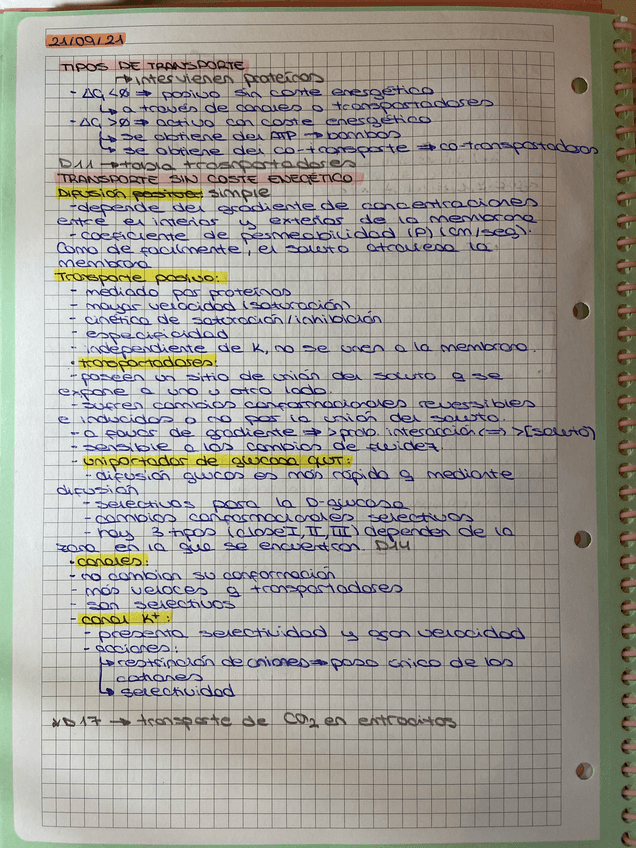 21/09/21
TIPOS DE TRANSPORTE
↳ intervienen proteínas
- ΔG <0 ⇒ pasivo sin coste energético
↳ a través de canales o transportadores
- ΔG >0 ⇒ activo con coste energético
↳ se obtiene del ATP → bombas
↳ se obtiene del co-transporte ⇒ co-transportadores
D11 → tabla transportadores
TRANSPORTE SIN COSTE ENEGÉTICO
Difusión pasiva: simple
- depende del gradiente de concentraciones
entre el interior y exterior de la membrana
- coeficiente de permeabilidad (P) (cm/seg).
Como de facilmente, el soluto atraviesa la
membrana
Transporte pasivo:
- mediado por proteínas
- mayor velocidad (saturación)
- cinética de saturación/inhibición
- especificidad
- independiente de K, no se unen a la membrana.
· transportadores:
- poseen un sitio de unión del soluto q se
expone a uno u otro lado
- sufren cambios conformacionales reversibles
e inducidos o no por la unión del soluto.
- a favor de gradiente ⇒ >prob. interacción ⇔ >[soluto]
- sensible a los cambios de fluidez
- uniportador de glucosa GLUT:
- difusión glucos es más rápida q mediante
difusión
- selectivos para la D-glucosa
- cambios conformacionales selectivos
- hay 3 tipos (clase I, II, III) dependen de la
zona en la que se encuentran. D14
· canales:
- no cambian su conformación
- más veloces q transportadores
- son selectivos
- canal K+:
- presenta selectividad y gran velocidad
- acciones:
↳ restrinción de aniones ⇒ paso único de los
cationes
↳ selectividad
D17 → transporte de CO2 en eritrocitos